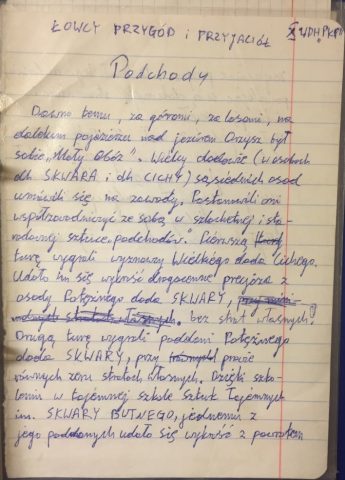 ŁOWCY PRZYGÓD i PRZYJACIÓŁ
X WDH „PKP"
Podchody
Dawno temu, za górami, za lasami, na
dalekim pojezierzu nad jeziorem Orzysz był
sobie „Mały Obóz". Wielcy dodowie (w osobach
dh. SKWARA i dh CICHY) sąsiednich osad
umówili się na zawody. Postanowili oni
współzawodniczyć ze sobą w szlachetnej i sta-
rodawnej sztuce „podchodów." Pierwszą
turę wygrali wyznawcy Wielkiego doda Cichego.
Udało im się wykraść drogocenne precjoza z
osady Potężnego doda SKWARY, bez strat własnych!
Drugą turę wygrali poddani Potężnego
doda SKWARY, przy prawie
równych zeru stratach własnych. Dzięki szko-
leniu w tajemnej szkole Sztuk Tajemnych
im. SKWARY BUTNEGO, jednemu z
jego poddanych udało się wykraść z powrotem